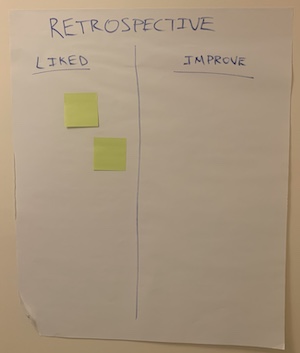 RETROSPECTIVE
LIKED
IMPROVE